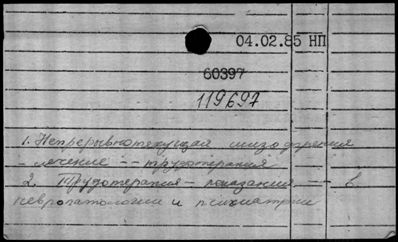 04.02.85 НП
60397
119697
1. Непрерывнотекущая шизофрения
- лечение -- трудотерапия
2. Трудотерапия - показания -- в
невропатологии и психиатрии